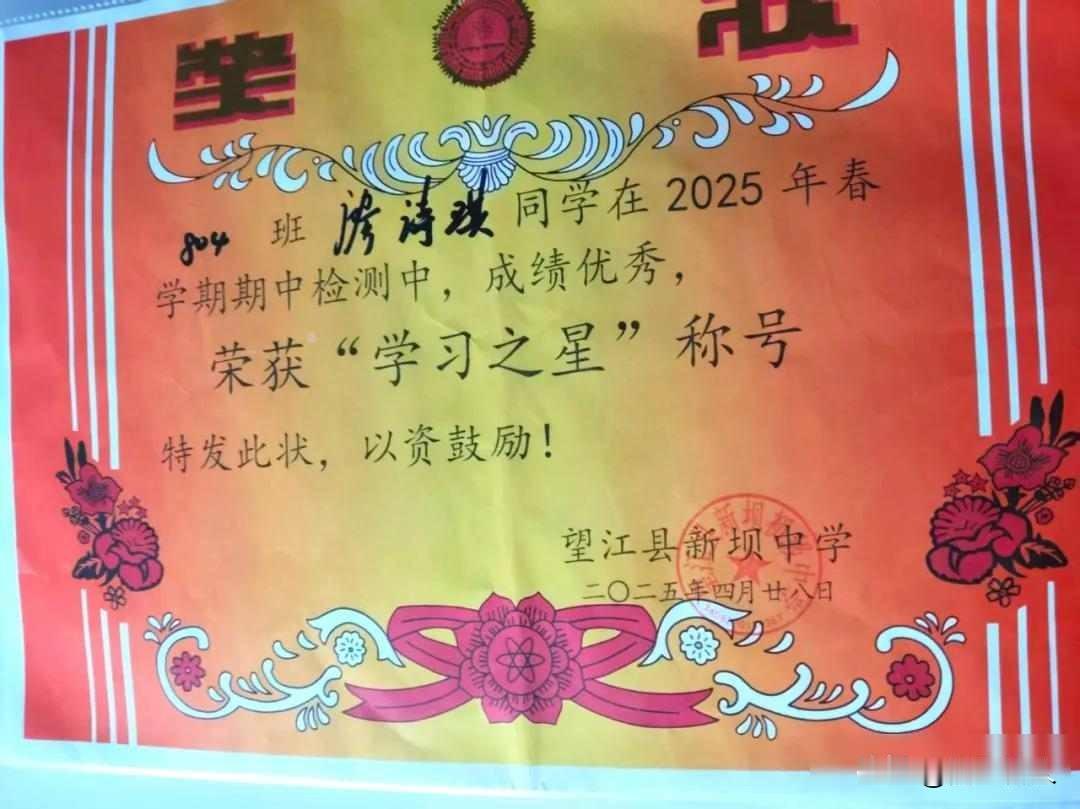 奖状
804 班 诗琪 同学在 2025 年春
学期期中检测中，成绩优秀，
荣获“学习之星”称号
特发此状，以资鼓励！
望江县新坝中学
二〇二五年四月廿八日